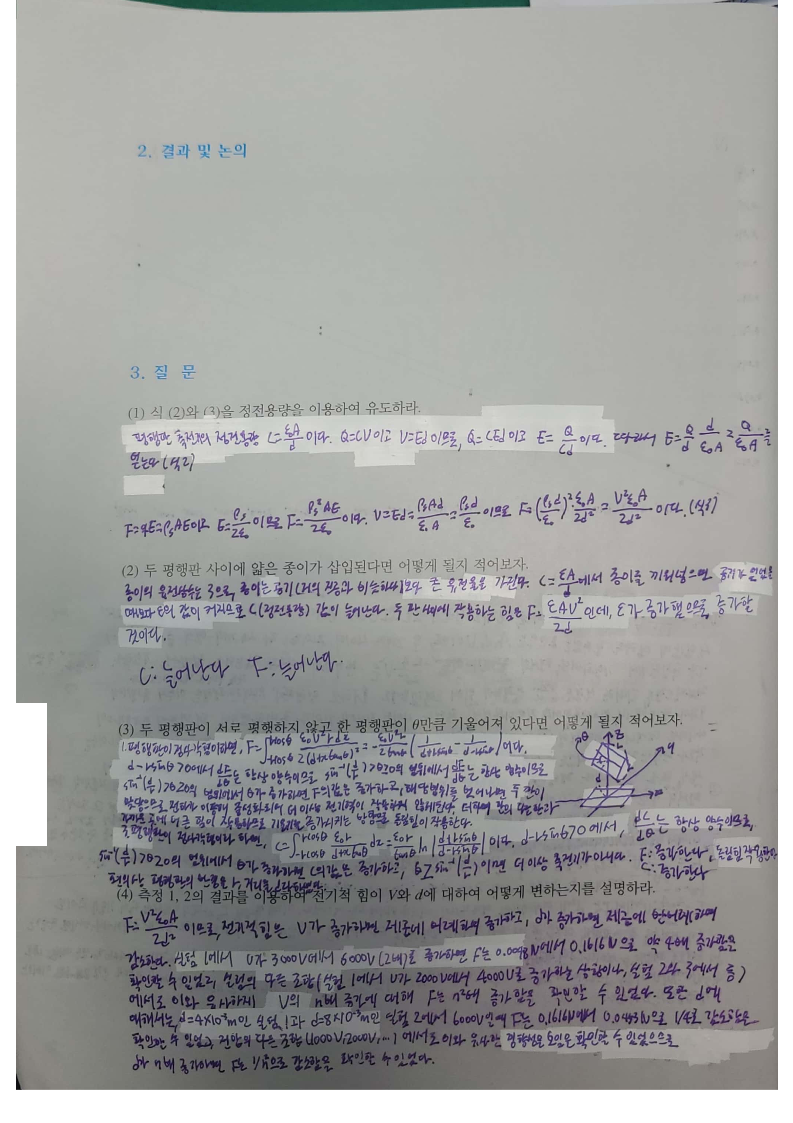 2. 결과 및 논의
3. 질 문
(1) 식 (2)와 (3)을 정전용량을 이용하여 유도하라.
평행판 축전기의 정전용량 C=εA/d 이다. Q=CV이고 V=Ed이므로, Q=CEd이고 E=Q/Cd 이다. 따라서 E=Q/d · d/ε₀A = Q/ε₀A 를
얻는다 (식2)
F=qE=ρₛAE이고 E=ρₛ/2ε₀ 이므로 F=ρₛ²AE/2ε₀ 이다. V=Ed=ρₛAd/ε₀A=ρₛd/ε₀ 이므로 F=(ρₛd/ε₀)²·ε₀A/2d²=V²ε₀A/2d² 이다. (식3)
(2) 두 평행판 사이에 얇은 종이가 삽입된다면 어떻게 될지 적어보자.
종이의 유전상수는 3으로, 종이는 공기(거의 진공과 비슷하다)보다 큰 유전율을 가진다. C=εA/d에서 종이를 끼워넣으면 공기가 있었을
때보다 ε의 값이 커지므로 C(정전용량) 값이 늘어난다. 두 판 사이에 작용하는 힘은 F=εAV²/2d 인데, ε가 증가했으므로, 증가할
것이다.
C: 늘어난다 F: 늘어난다.
(3) 두 평행판이 서로 평행하지 않고 한 평행판이 θ만큼 기울어져 있다면 어떻게 될지 적어보자.
1. 평행판이 정사각형이라면,
d-rsinθ>0에서 dF/dθ는 항상 양수이므로 sin⁻¹(d/r)>θ≥0의 범위에서 dF/dθ는 항상 양수이므로
sin⁻¹(d/r)>θ≥0의 범위에서 θ가 증가하면 F의 값은 증가하고, 해당범위를 벗어나면 두 판이
맞닿으므로 전하가 이동해 중성화되어 더 이상 전기력이 작용하지 않게된다.
이다. d-rsinθ>0에서, dC/dθ는 항상 양수이므로,
sin⁻¹(d/r)>θ≥0의 범위에서 θ가 증가하면 C의 값은 증가하고, θ≥sin⁻¹(d/r)이면 더이상 축전기가 아니다. F: 증가한다
C: 증가한다
(4) 측정 1, 2의 결과를 이용하여 전기적 힘이 V와 d에 대하여 어떻게 변하는지를 설명하라.
F=V²ε₀A/2d² 이므로, 전기적힘은 V가 증가하면 제곱에 비례하며 증가하고, d가 증가하면 제곱에 반비례하며
감소한다. 실험 1에서 V가 3000V에서 6000V(2배)로 증가하면 F는 에서 0.1616N으로 약 4배 증가함을
확인할 수 있었고, 실험의 다른 조합(실험 1에서 V가 2000V에서 4000V로 증가하는 상황이나, 실험 2와 3에서 등)
에서도 이와 유사하게 V의 n배 증가에 대해 F는 n²배 증가함을 확인할 수 있었다. 또한 d에
대해서는, d=4×10⁻³m인 실험 1과 d=8×10⁻³m인 실험 2에서 6000V일때 F는 0.1616N에서 으로 1/4로 감소함을
확인할 수 있었고 전압의 다른 조합(1000V, 2000V, ...)에서도 이와 유사한 경향성을 보임을 확인할 수 있었으므로
d가 n배 증가하면 F는 1/n²으로 감소함을 확인할 수 있었다.